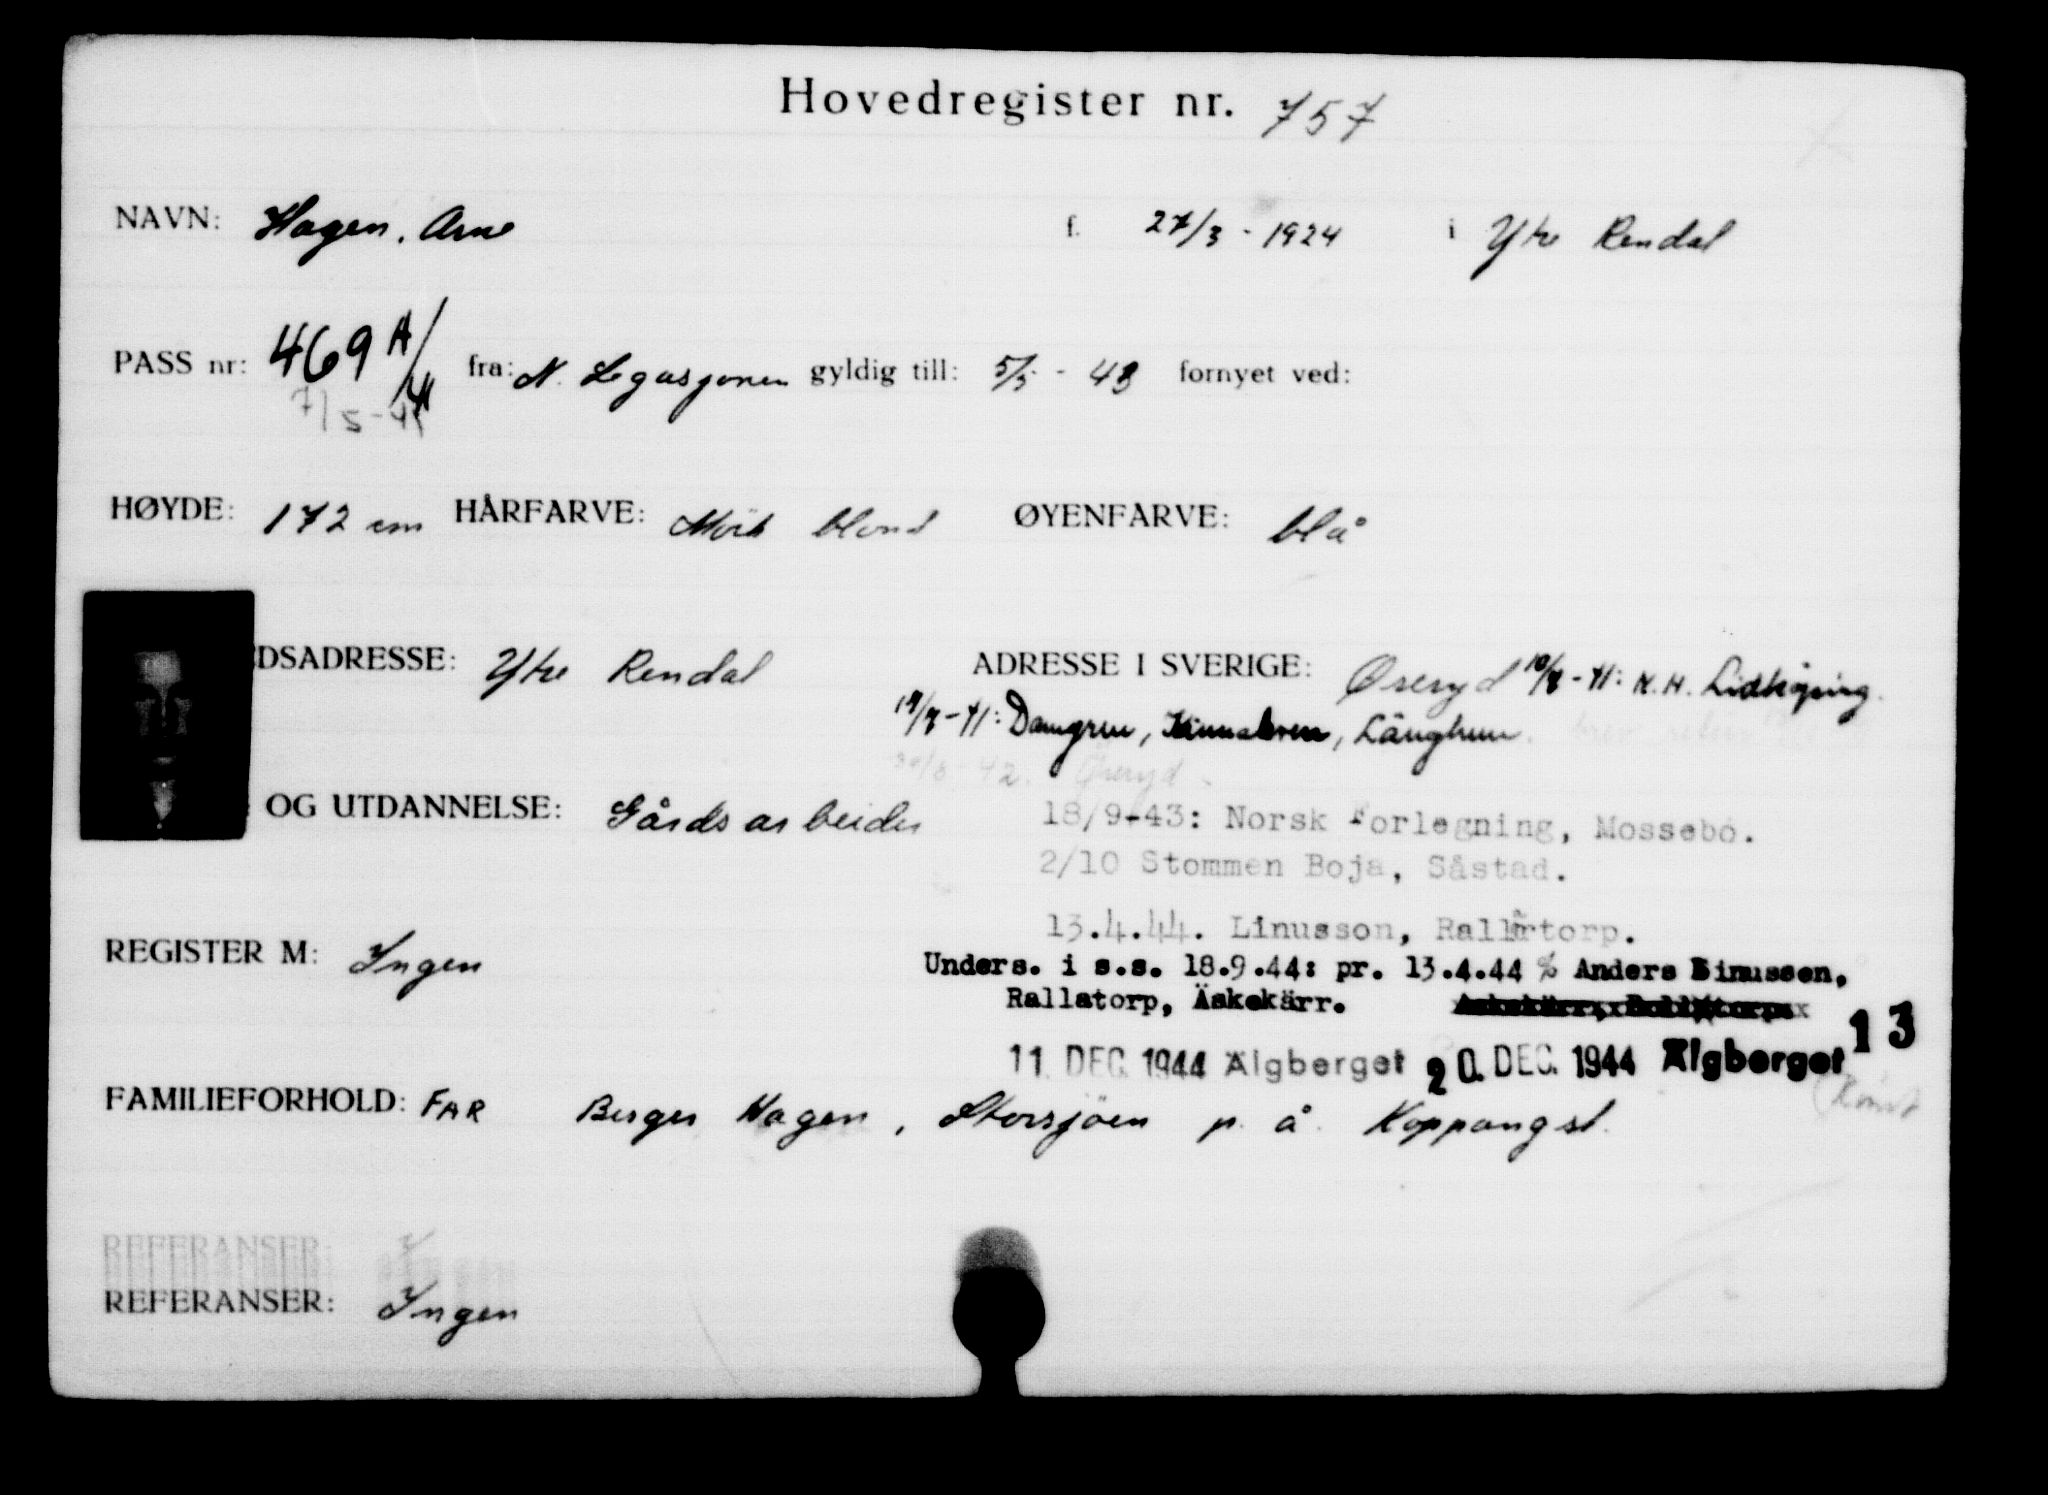 Hovedregister nr. 757
NAVN: Hagen, Arne f. 27/3 - 1924 i Ytre Rendal
PASS nr: 469 A/41 fra: N. Legasjonen gyldig till: 5/5 - 43 fornyet ved:
7/5-41
HØYDE: 172 cm HÅRFARVE: Mörk blond ØYENFARVE: blå
DSADRESSE: Ytre Rendal ADRESSE I SVERIGE: Øreryd 10/7-41: K.H. Lidköping.
19/7-41: Damgren, Kinnakven, Långhem.
30/8-42. Öreryd
OG UTDANNELSE: Gårdsarbeider 18/9-43: Norsk Forlegning, Mossebo.
2/10 Stommen Boja, Såstad.
13.4.44. Linusson, Rallatorp.
REGISTER M: Ingen Unders. i s.s. 18.9.44: pr. 13.4.44 % Anders Linussen,
Rallatorp, Äskekärr.
11. DEC. 1944 Älgberget 20. DEC. 1944 Älgberget 13
FAMILIEFORHOLD: FAR Berger Hagen, Storsjöen p. å. Koppangst.
REFERANSER: Ingen
REFERANSER: Ingen